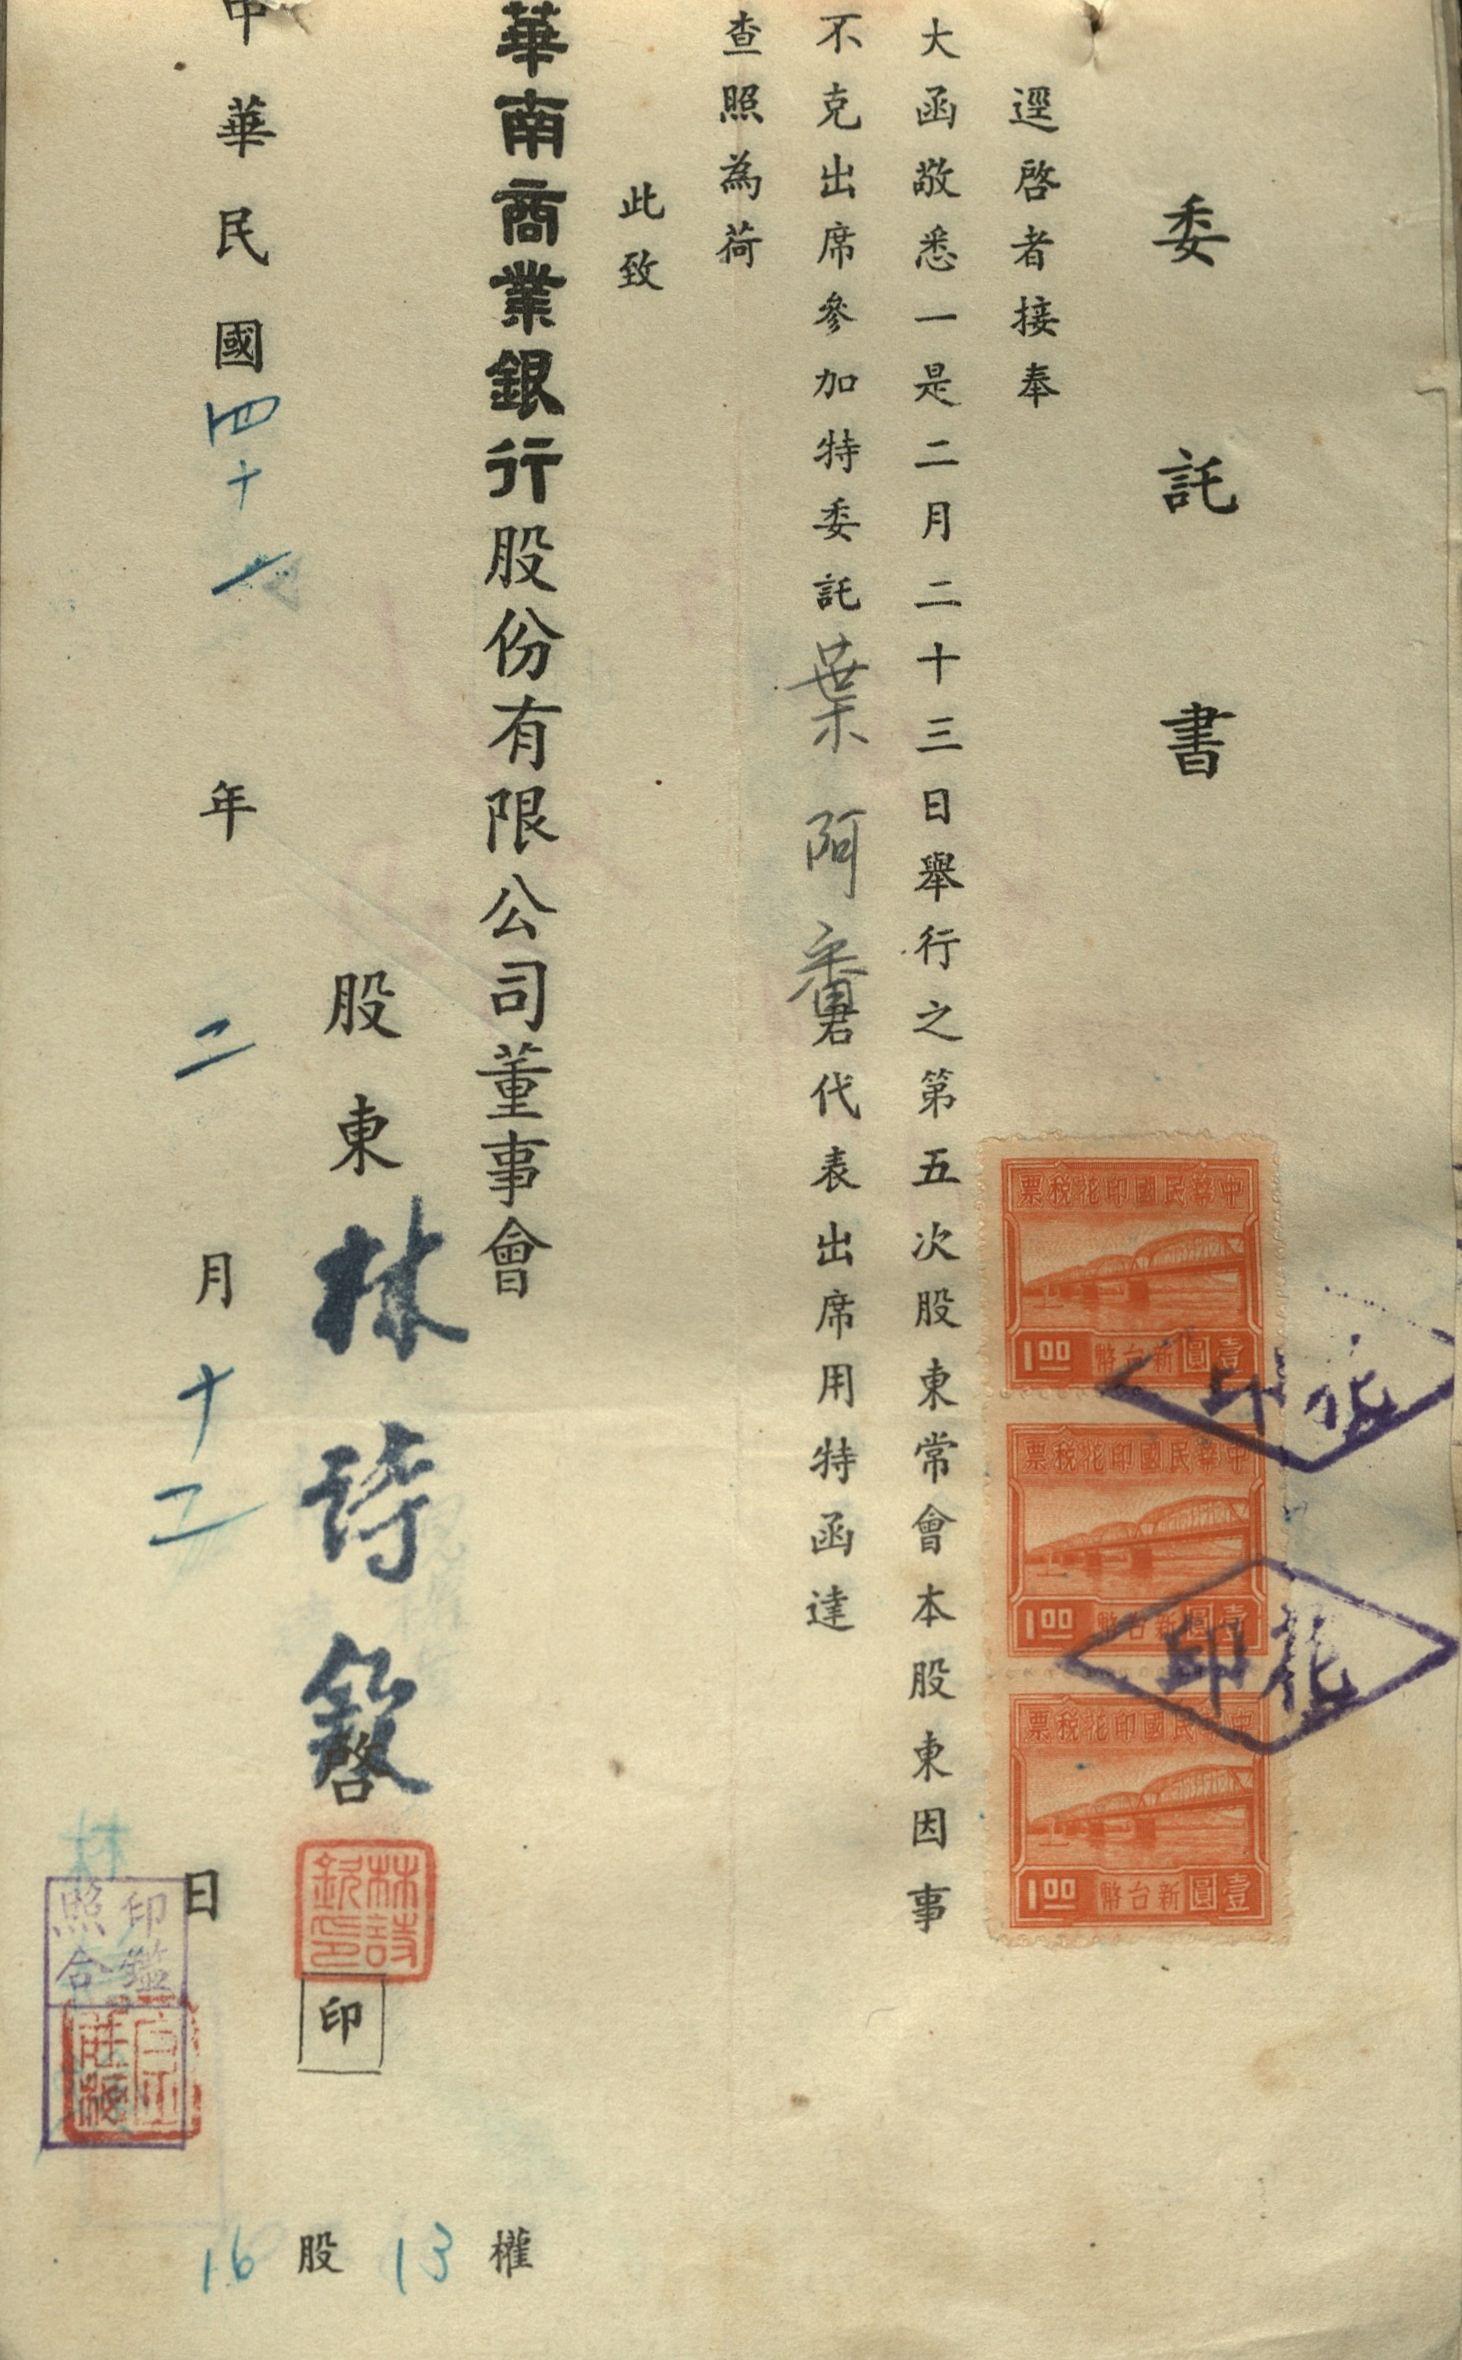 委託書
逕啓者接奉
大函敬悉一是二月二十三日舉行之第五次股東常會本股東因事
不克出席參加特委託葉阿番君代表出席用特函達
查照為荷
此致
華南商業銀行股份有限公司董事會
股東林詩欽啓
林詩
欽印
印
中華民國四十一年二月十二日
印鑑
照合
16股13權
中華民國印花稅票
1.00 壹圓新台幣
中華民國印花稅票
1.00 壹圓新台幣
中華民國印花稅票
1.00 壹圓新台幣
印花
印花